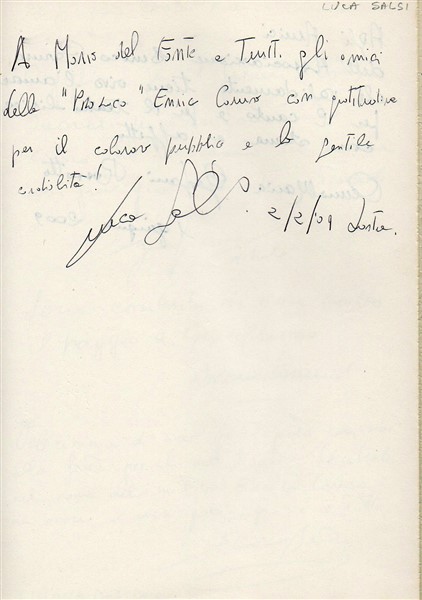 LUCA SALSI
A Mario del Fonte e Tutti gli amici
della "PROLOCO" Enrico Caruso con gratitudine
per il caloroso pubblico e la gentile
cordialità!
Luca Salsi
2/2/'09 Lastra.